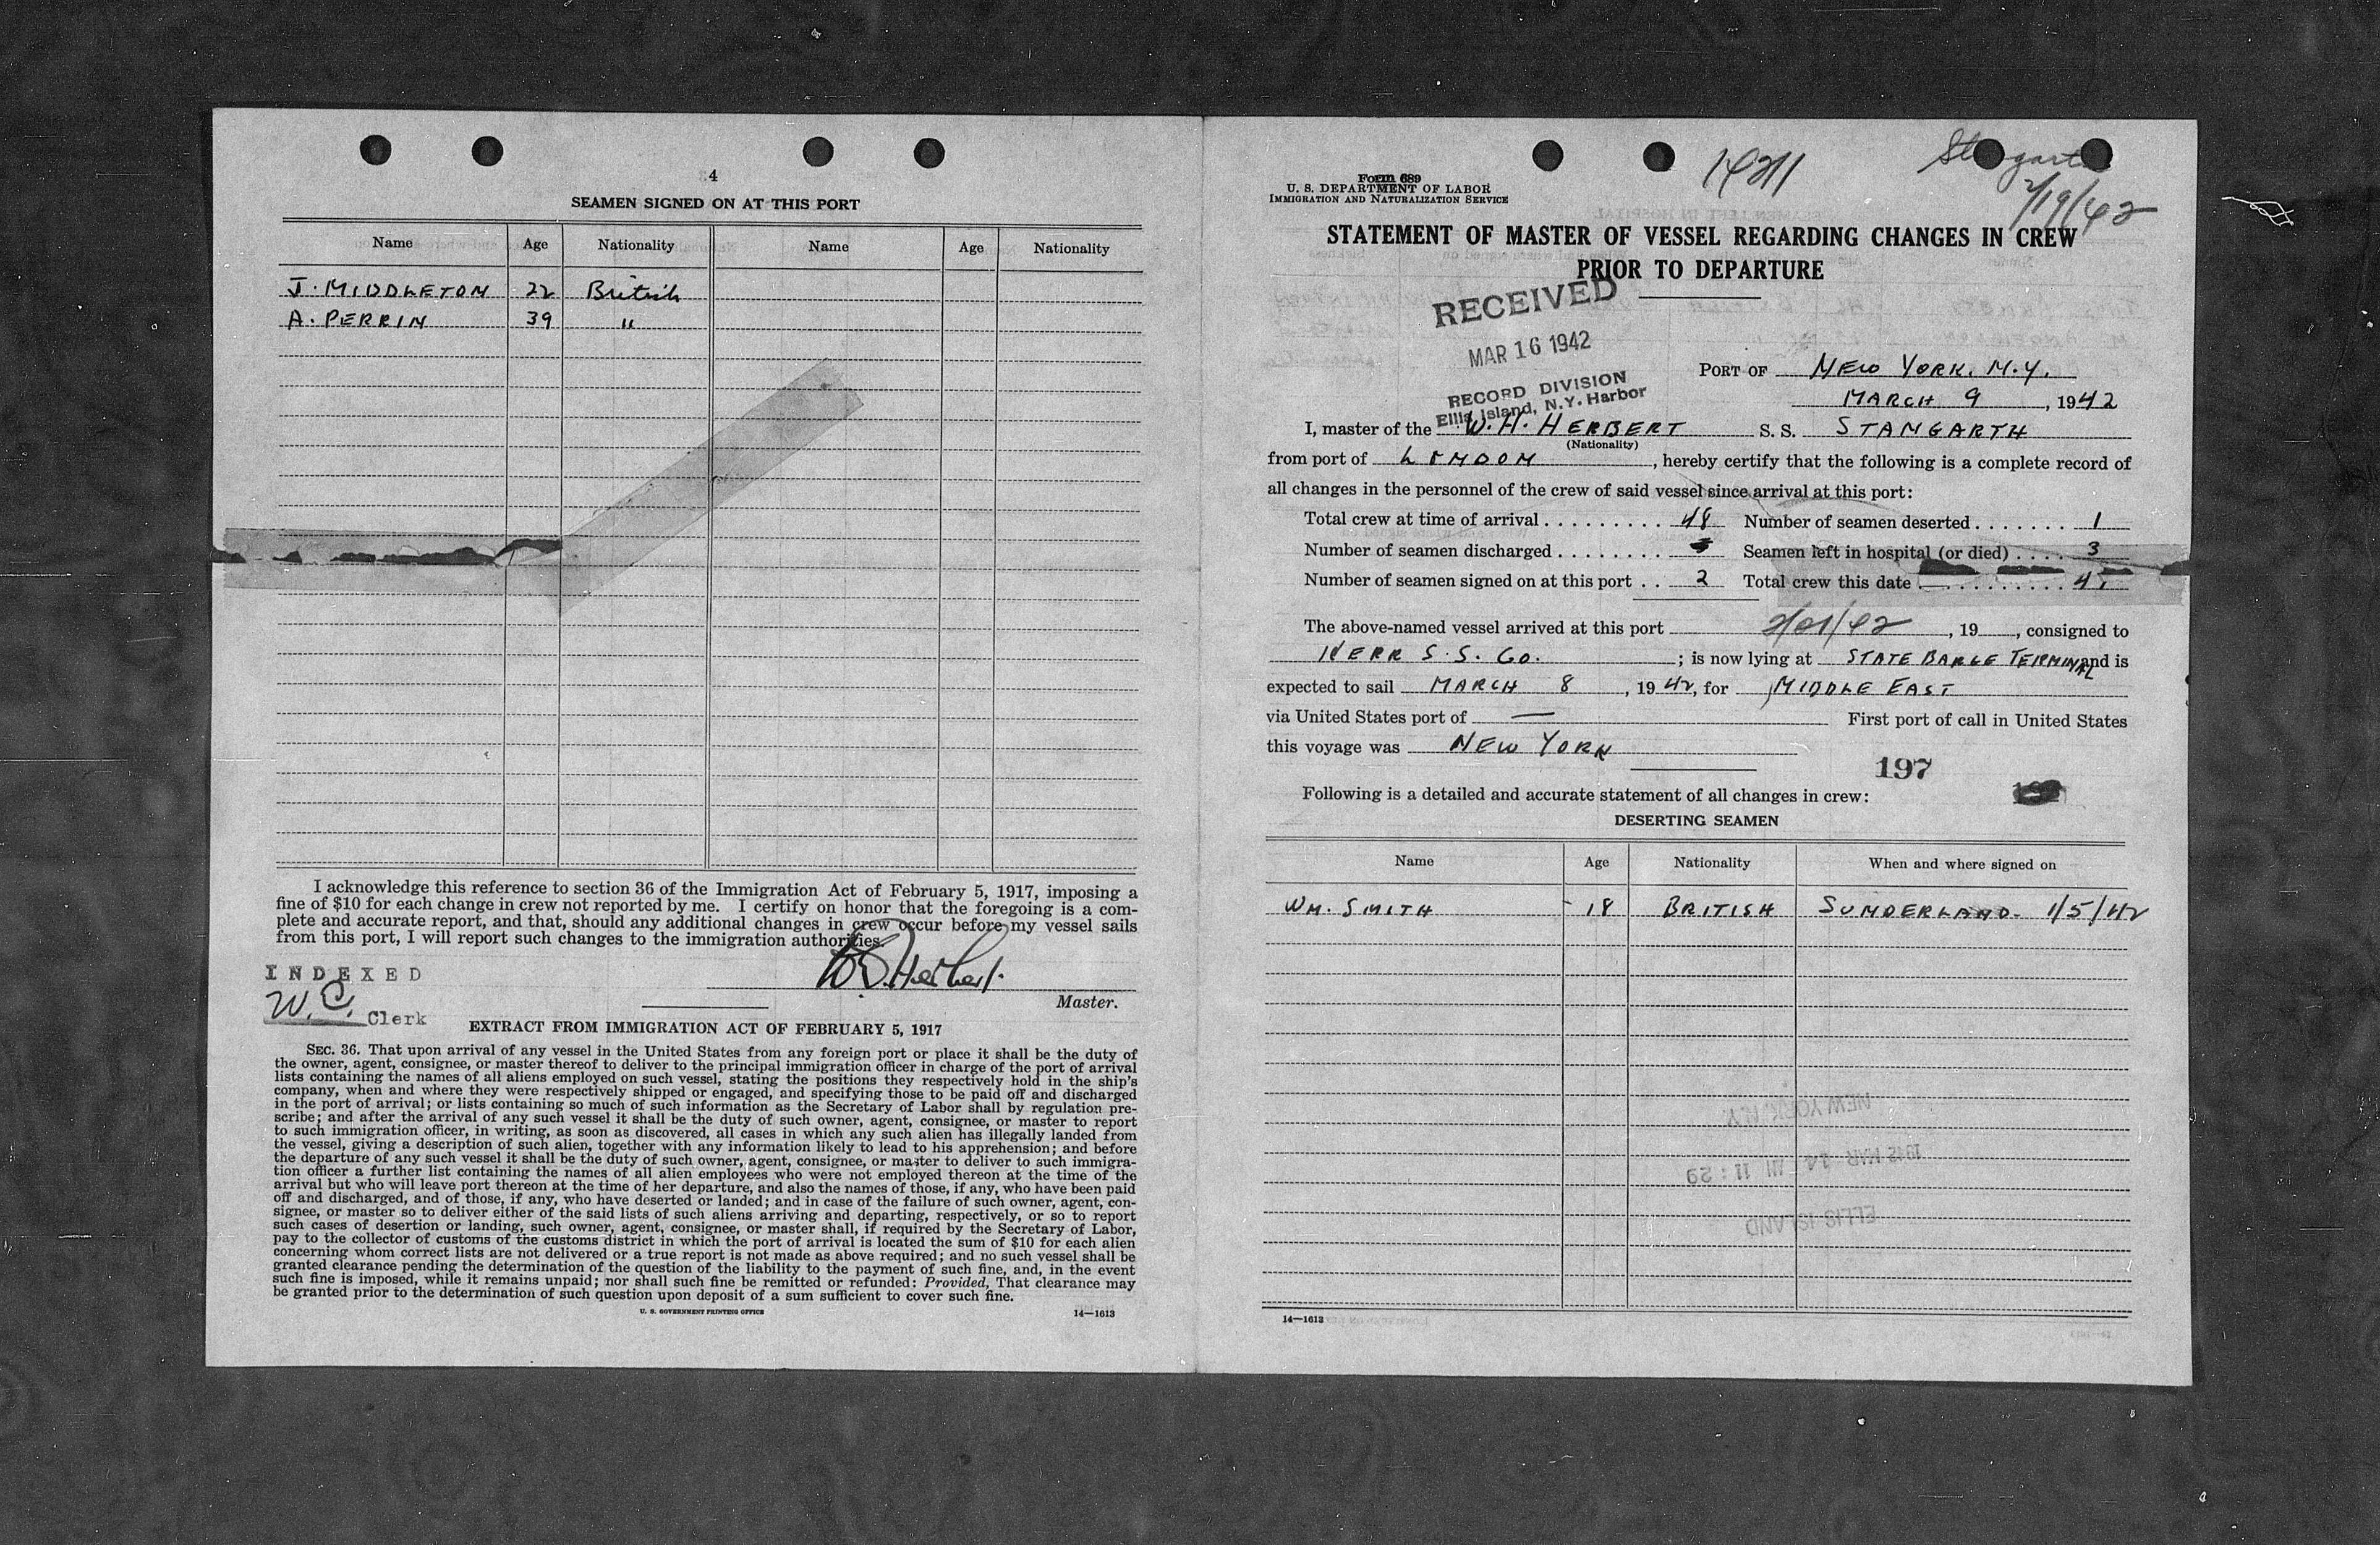 4
SEAMEN SIGNED ON AT THIS PORT
Name Age Nationality Name Age Nationality
J. MIDDLETON 22 British
A. PERRIN 39 "
I acknowledge this reference to section 36 of the Immigration Act of February 5, 1917, imposing a
fine of $10 for each change in crew not reported by me. I certify on honor that the foregoing is a com-
plete and accurate report, and that, should any additional changes in crew occur before my vessel sails
from this port, I will report such changes to the immigration authorities.
INDEXED
W.C. Clerk
Herbert
Master.
EXTRACT FROM IMMIGRATION ACT OF FEBRUARY 5, 1917
SEC. 36. That upon arrival of any vessel in the United States from any foreign port or place it shall be the duty of
the owner, agent, consignee, or master thereof to deliver to the principal immigration officer in charge of the port of arrival
lists containing the names of all aliens employed on such vessel, stating the positions they respectively hold in the ship's
company, when and where they were respectively shipped or engaged, and specifying those to be paid off and discharged
in the port of arrival; or lists containing so much of such information as the Secretary of Labor shall by regulation pre-
scribe; and after the arrival of any such vessel it shall be the duty of such owner, agent, consignee, or master to report
to such immigration officer, in writing, as soon as discovered, all cases in which any such alien has illegally landed from
the vessel, giving a description of such alien, together with any information likely to lead to his apprehension; and before
the departure of any such vessel it shall be the duty of such owner, agent, consignee, or master to deliver to such immigra-
tion officer a further list containing the names of all alien employees who were not employed thereon at the time of the
arrival but who will leave port thereon at the time of her departure, and also the names of those, if any, who have been paid
off and discharged, and of those, if any, who have deserted or landed; and in case of the failure of such owner, agent, con-
signee, or master so to deliver either of the said lists of such aliens arriving and departing, respectively, or so to report
such cases of desertion or landing, such owner, agent, consignee, or master shall, if required by the Secretary of Labor,
pay to the collector of customs of the customs district in which the port of arrival is located the sum of $10 for each alien
concerning whom correct lists are not delivered or a true report is not made as above required; and no such vessel shall be
granted clearance pending the determination of the question of the liability to the payment of such fine, and, in the event
such fine is imposed, while it remains unpaid; nor shall such fine be remitted or refunded: Provided, That clearance may
be granted prior to the determination of such question upon deposit of a sum sufficient to cover such fine.
U. S. GOVERNMENT PRINTING OFFICE 14—1613
Form 689
U. S. DEPARTMENT OF LABOR
IMMIGRATION AND NATURALIZATION SERVICE
2/19/42
STATEMENT OF MASTER OF VESSEL REGARDING CHANGES IN CREW
PRIOR TO DEPARTURE
RECEIVED
MAR 16 1942
RECORD DIVISION
Ellis Island, N.Y. Harbor
PORT OF NEW YORK. N.Y.
MARCH 9, 1942
I, master of the W. H. HERBERT S. S. STANGARTH
(Nationality)
from port of LONDON, hereby certify that the following is a complete record of
all changes in the personnel of the crew of said vessel since arrival at this port:
Total crew at time of arrival . . . . . . . . . 48 Number of seamen deserted . . . . . . . 1
Number of seamen discharged . . . . . . . . Seamen left in hospital (or died) . . . . 3
Number of seamen signed on at this port . . 2 Total crew this date . . . . . . . . .
The above-named vessel arrived at this port , 19 , consigned to
KERR S.S. Co. ; is now lying at STATE BARGE TERMINAL and is
expected to sail MARCH 8, 1942, for MIDDLE EAST
via United States port of — First port of call in United States
this voyage was NEW YORK
197
Following is a detailed and accurate statement of all changes in crew:
DESERTING SEAMEN
Name Age Nationality When and where signed on
WM. SMITH 18 BRITISH SUNDERLAND. 1/5/42
NEW YORK N.Y.
11 : 29
ELLIS ISLAND
14—1613